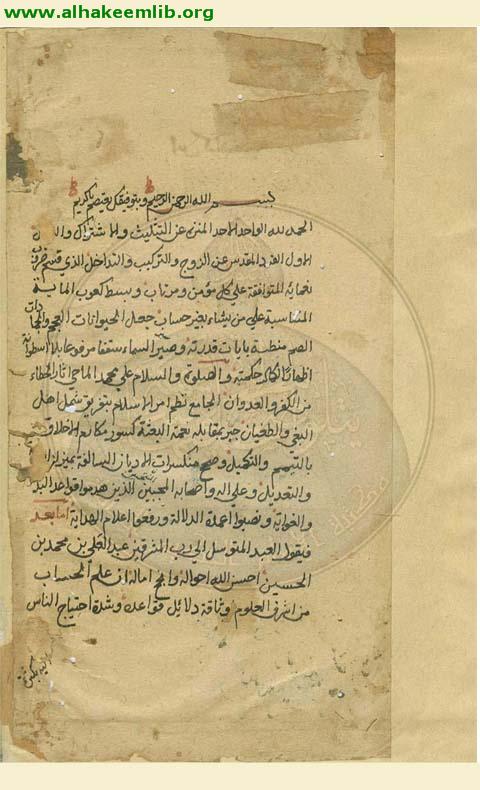 www.alhakeemlib.org
بسم الله الرحمن الرحيم وبتوفيقك يعتصم يا كريم
الحمد لله الواحد الاحد المنزه عن التثليث والاشتراك
الاول الفرد المقدس عن الزوج والتركيب والتداخل الذي قسم ضروب
نعمائه المتوافقة على كل مؤمن ومرتاب وبسط كعوب
المتناسبة على من يشاء بغير حساب جعل الحيوانات العجم والجمادات
الصم منطقة بايات قدرته وصير السماء سقفا مرفوعا بلا اسطوانة
اظهارا لكمال حكمته والصلوة والسلام على محمد الماحي اثار الخطاء
من الكفر والعدوان الجامع نظام الاسلام بتفريق شمل اهل
البغي والطغيان جبر بمقابلة نعمة البعثة كسور مكارم الاخلاق
بالتتميم والتكميل وصحح منكسرات الاديان السالفة بميزان
والتعديل وعلى اله واصحابه المجبين الذين هدموا قواعد
والغواية ونصبوا اعمدة الدلالة ورفعوا اعلام الهداية اما بعد
فيقول العبد المتوسل الى رب المشرقين عبد العلي بن محمد بن
الحسين احسن الله احواله وانجح اماله ان علم الحساب
من اشرف العلوم وثاقة دلائل قواعده وشدة احتياج الناس